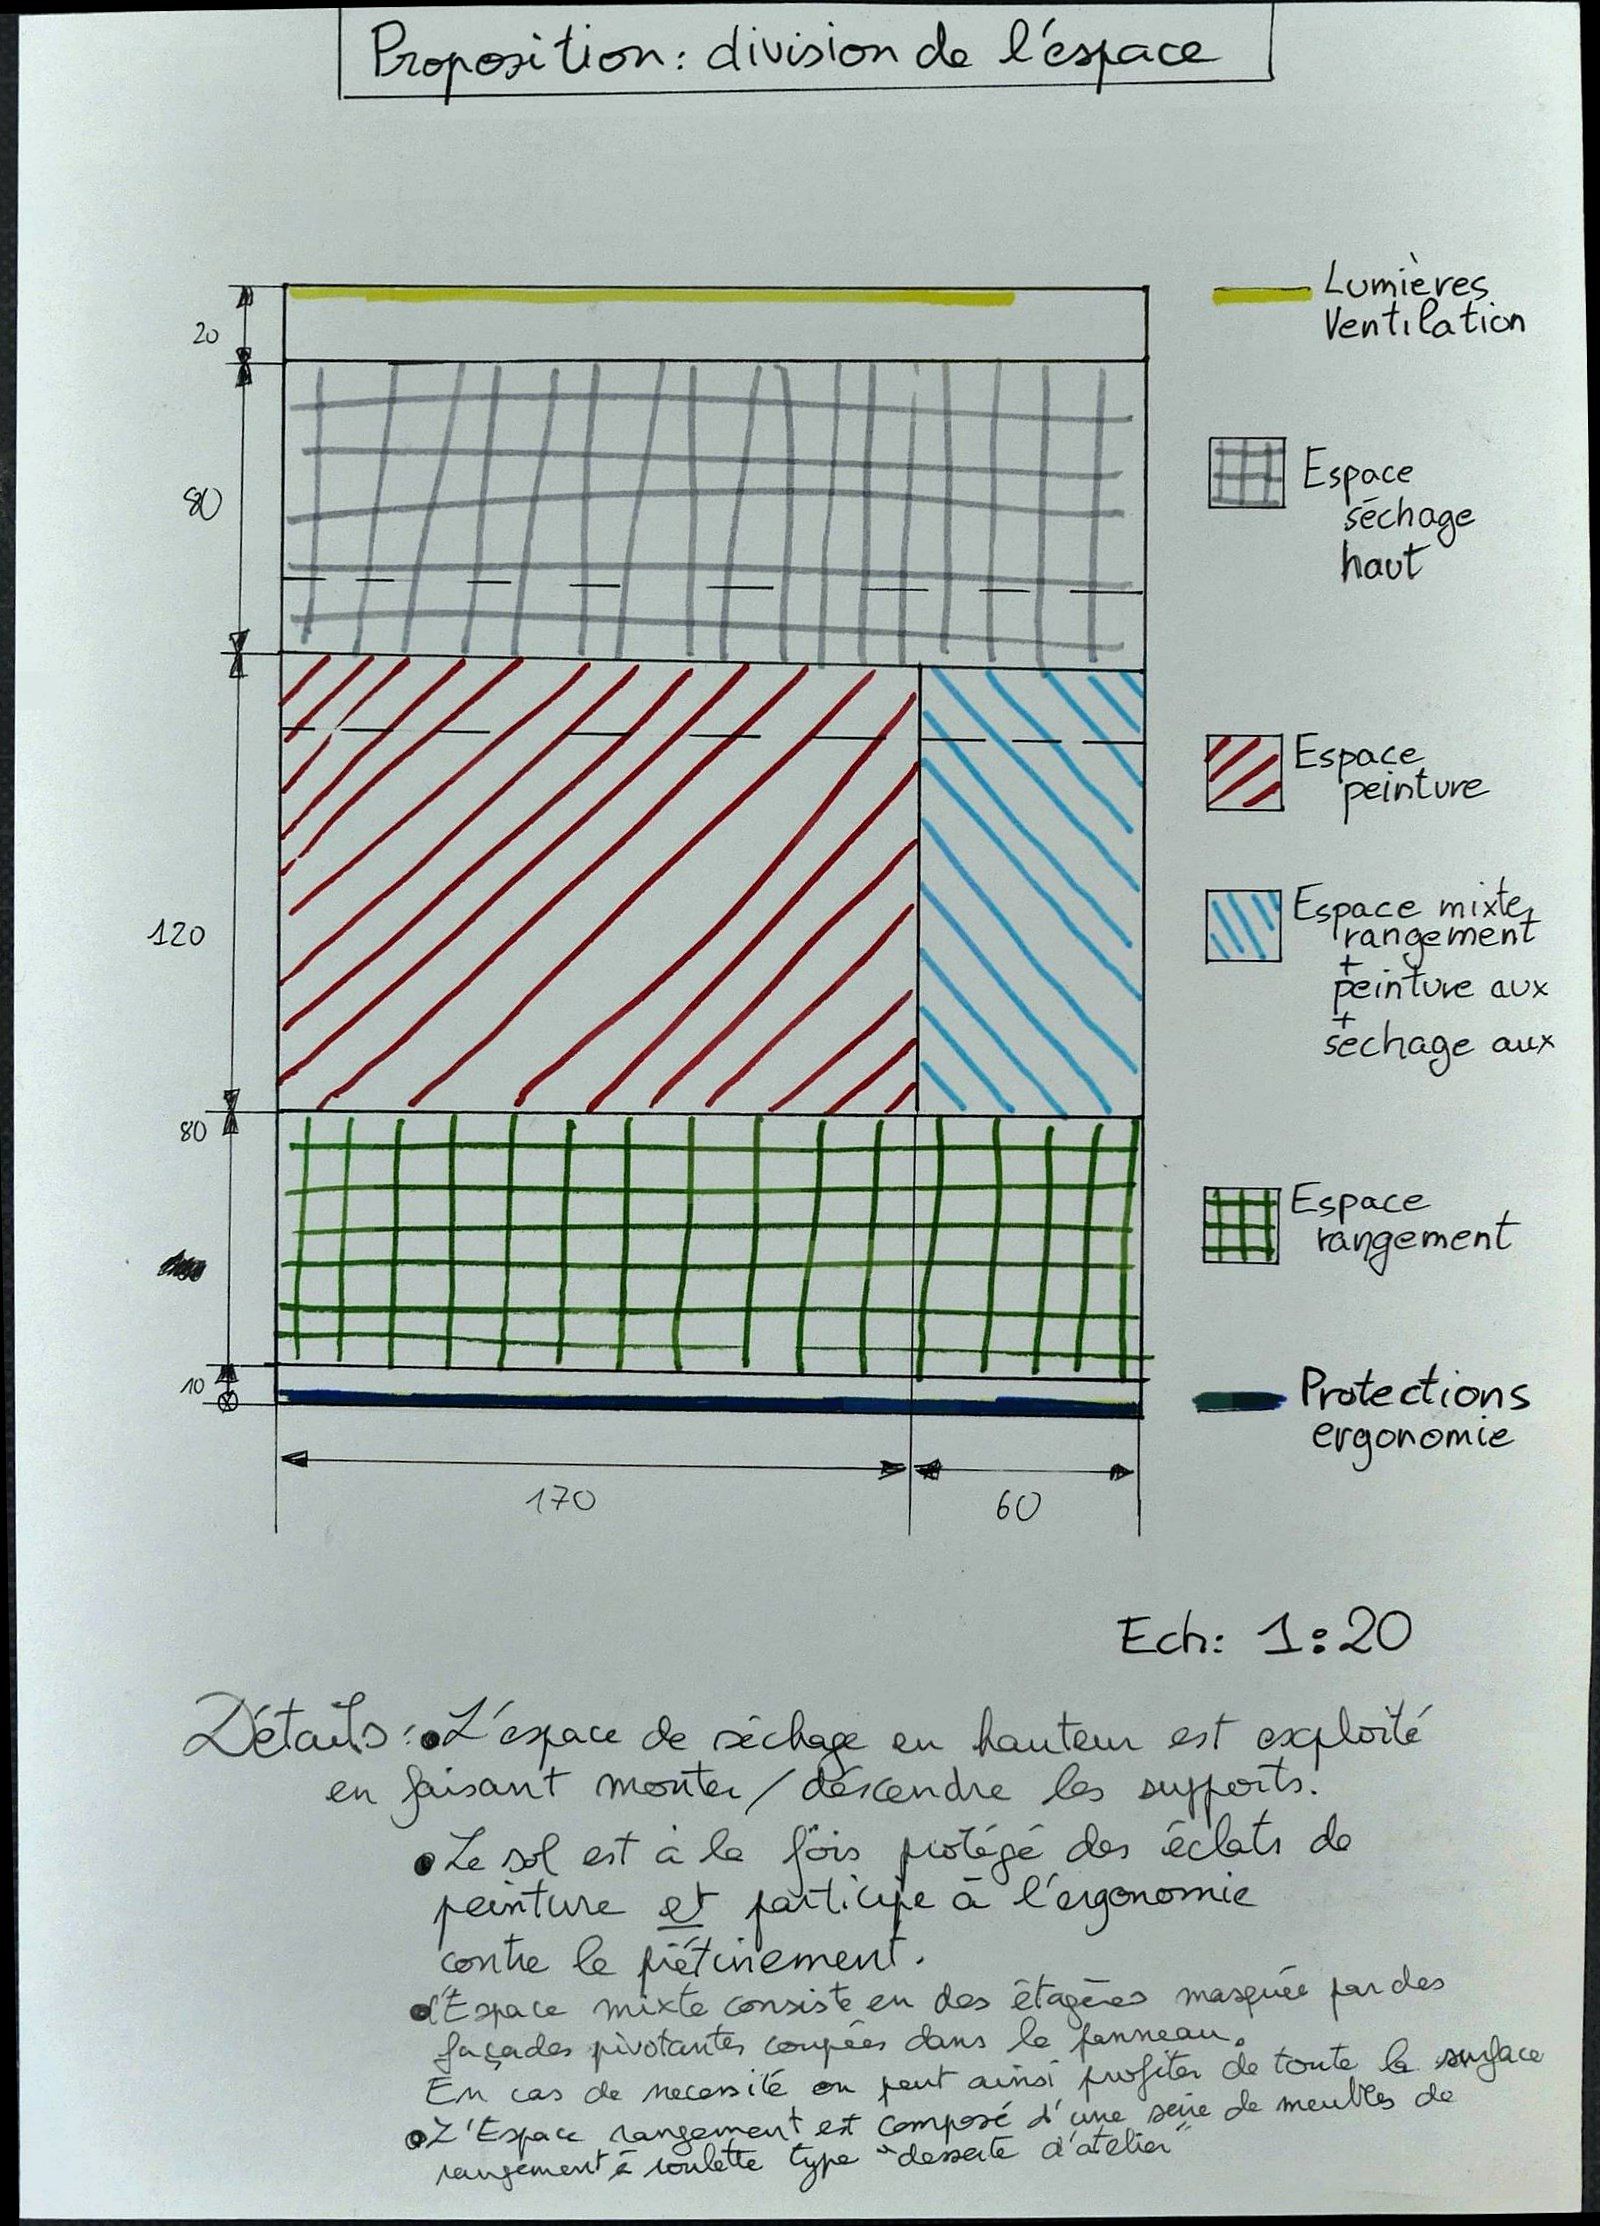 Proposition: division de l'espace
20
80
120
80
10
170
60
Lumières
Ventilation
Espace
séchage
haut
Espace
peinture
Espace mixte
rangement
+
peinture aux
+
sechage aux
Espace
rangement
Protections
ergonomie
Ech: 1:20
Détails: • L'espace de séchage en hauteur est exploité
en faisant monter / descendre les supports.
• Le sol est à la fois protégé des éclats de
peinture et participe à l'ergonomie
contre le piétinement.
• L'Espace mixte consiste en des étagères masquée par des
façades pivotantes coupées dans le panneau.
En cas de necessité on peut ainsi profiter de toute la surface
• L'Espace rangement est composé d'une serie de meubles de
rangement à roulette type "desserte d'atelier"